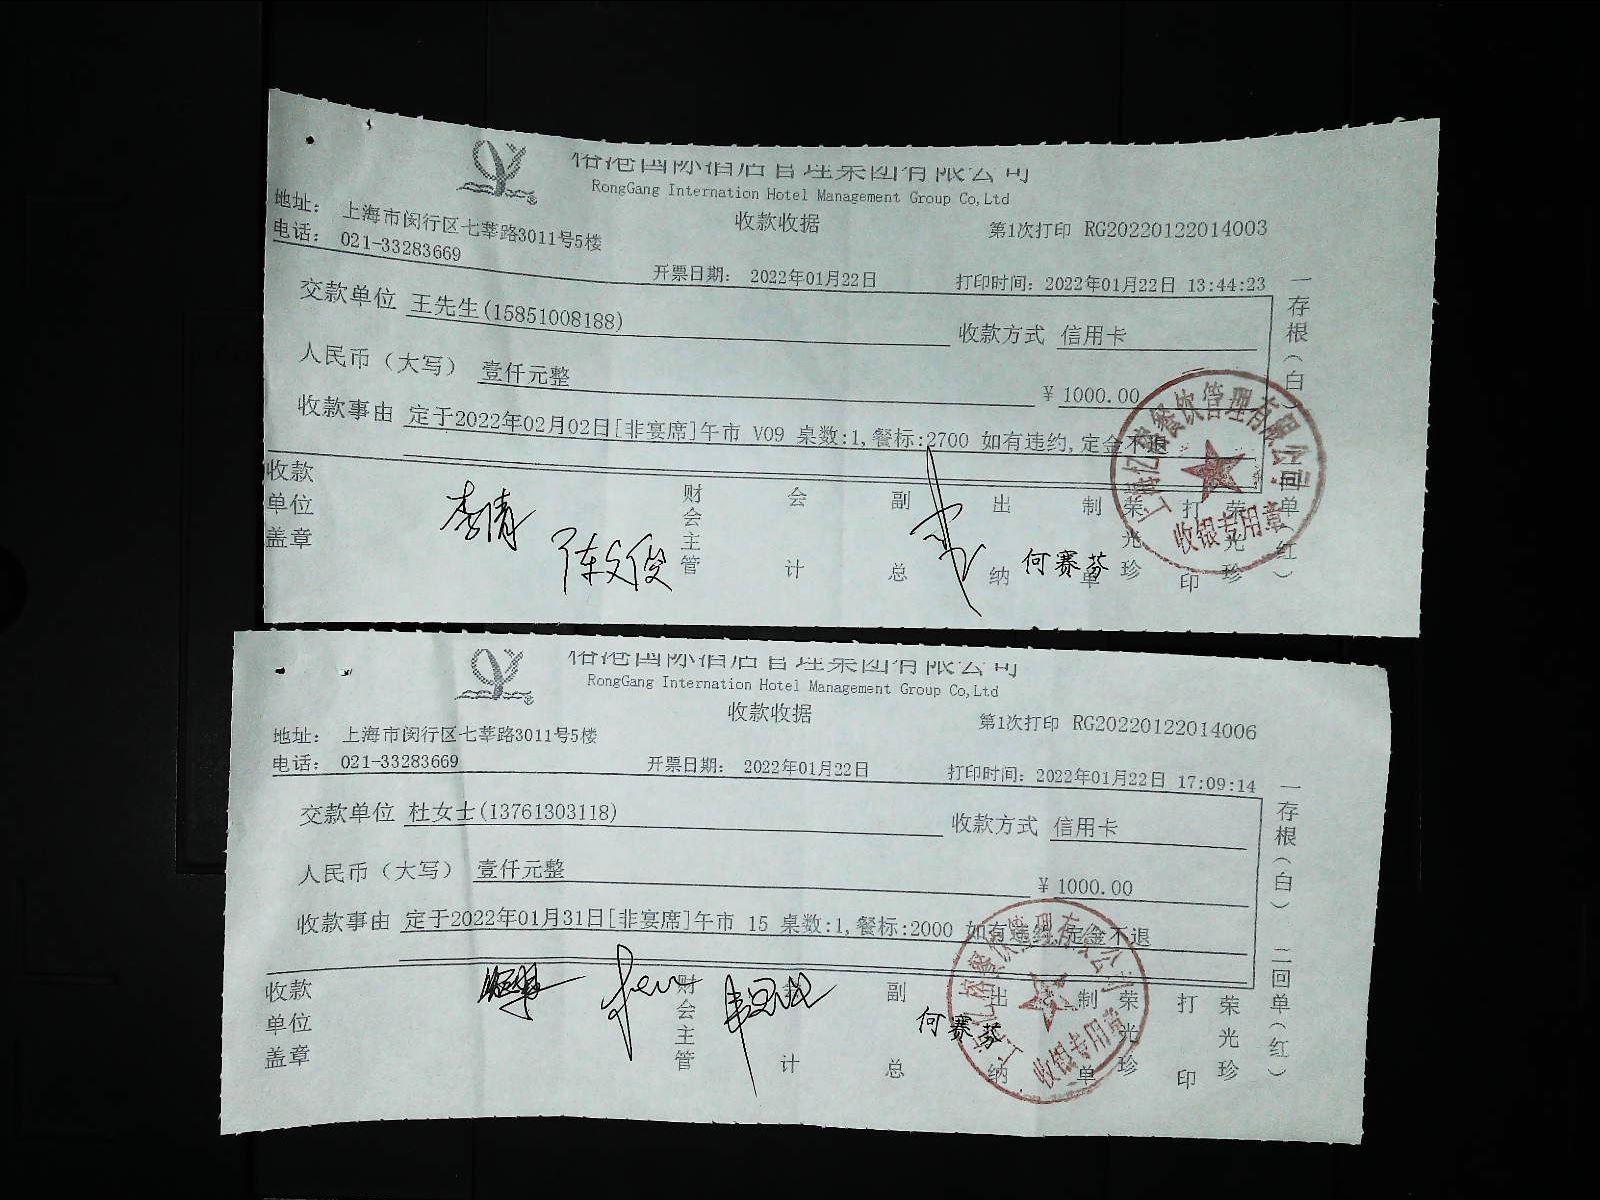 榕港国际酒店管理集团有限公司
RongGang Internation Hotel Management Group Co,Ltd
收款收据
第1次打印 RG20220122014003
地址： 上海市闵行区七莘路3011号5楼
电话： 021-33283669
开票日期： 2022年01月22日
打印时间：2022年01月22日 13:44:23
交款单位 王先生(15851008188)
收款方式 信用卡
人民币（大写） 壹仟元整
¥ 1000.00
收款事由 定于2022年02月02日[非宴席]午市 V09 桌数:1,餐标:2700 如有违约,定金不退
收款单位盖章
李倩
陈文俊
财会主管
会计
副总
出纳
何赛芬
制单
荣光珍
打印
荣光珍
一存根（白） 二回单（红）
餐饮管理有限公司
收银专用章
榕港国际酒店管理集团有限公司
RongGang Internation Hotel Management Group Co,Ltd
收款收据
第1次打印 RG20220122014006
地址： 上海市闵行区七莘路3011号5楼
电话： 021-33283669
开票日期： 2022年01月22日
打印时间：2022年01月22日 17:09:14
交款单位 杜女士(13761303118)
收款方式 信用卡
人民币（大写） 壹仟元整
¥ 1000.00
收款事由 定于2022年01月31日[非宴席]午市 15 桌数:1,餐标:2000 如有违约,定金不退
收款单位盖章
财会主管
会计
副总
何赛芬
出纳
制单
荣光珍
打印
荣光珍
一存根（白） 二回单（红）
餐饮管理有限公司
收银专用章